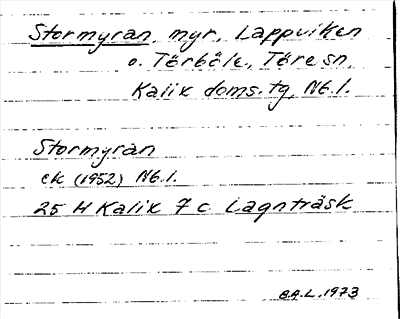 Stormyran, myr, Lappviken
o. Töreböle, Töre sn,
Kalix doms.tg, Nb.l.
Stormyran
ek (1952) Nb.l.
25 H Kalix 7 c Lagnträsk
B.A.L. 1973